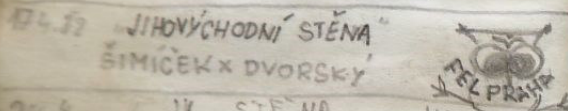 17.4.82 „JIHOVÝCHODNÍ STĚNA"
ŠIMÍČEK X DVORSKÝ
FEL PRAHA
STĚNA